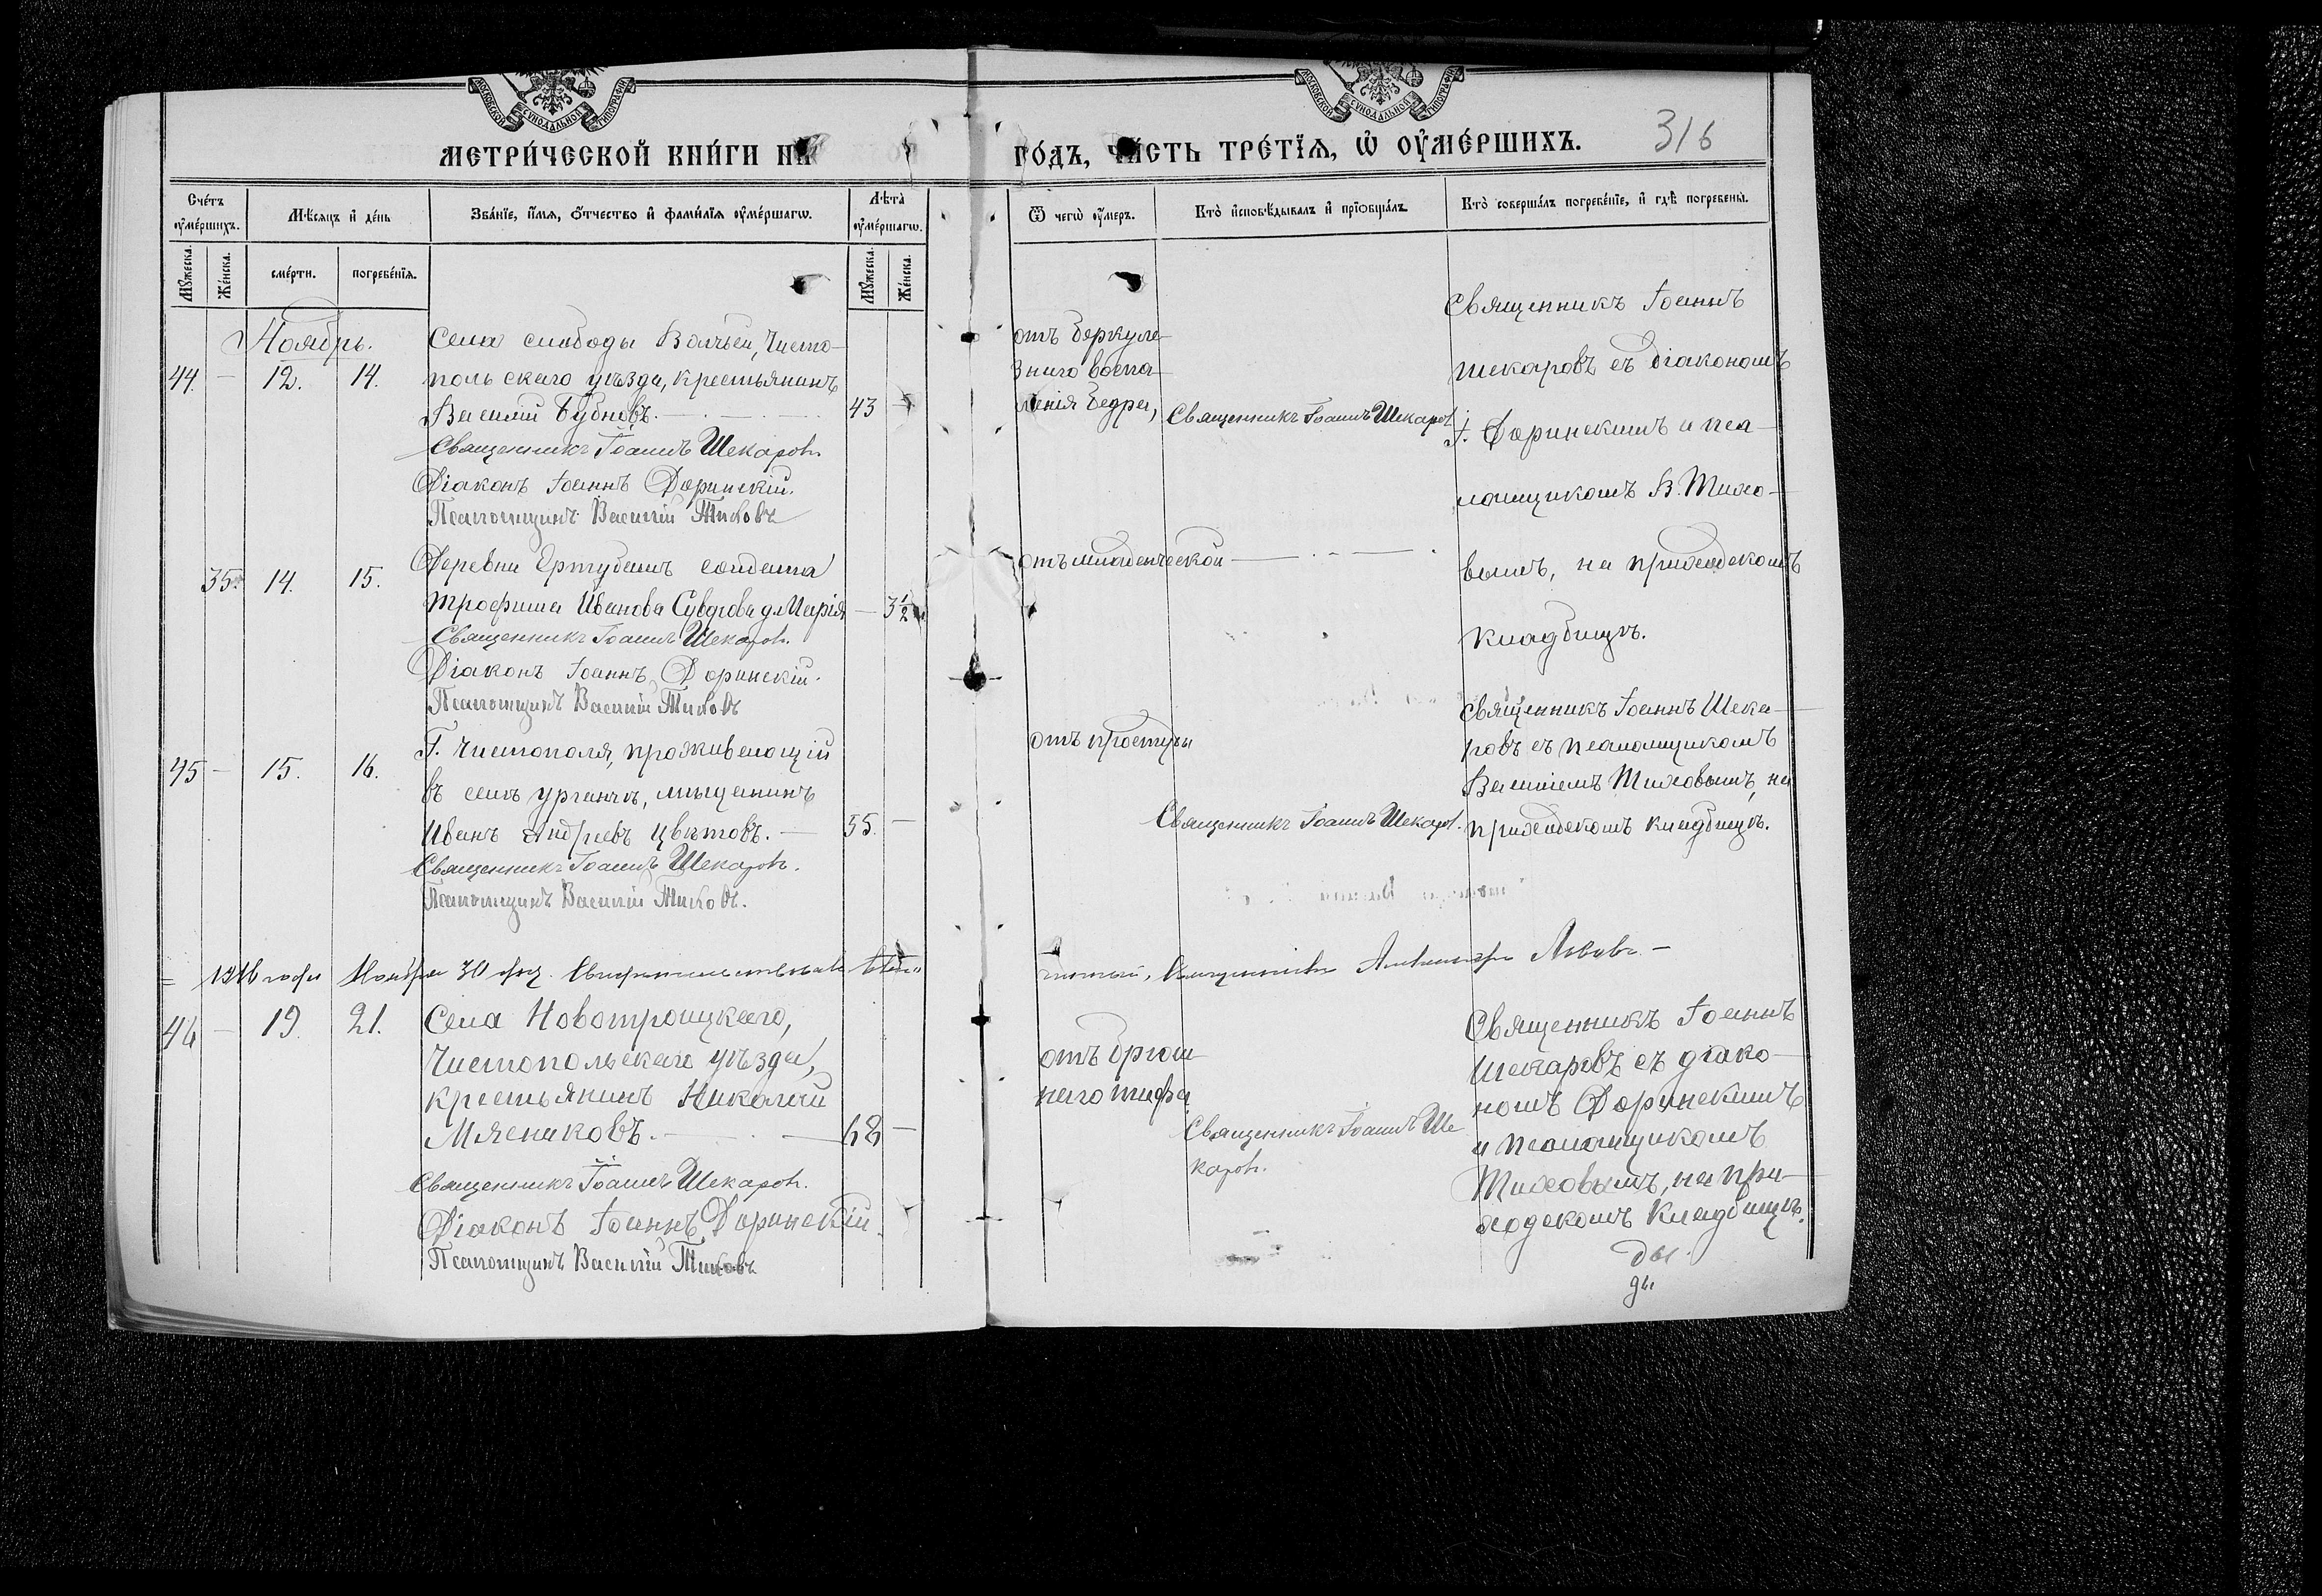 МОСКОВСКОЙ СѴНОДАЛЬНОЙ ТИПОГРАФІИ
МОСКОВСКОЙ СѴНОДАЛЬНОЙ ТИПОГРАФІИ
МЕТРИ́ЧЕСКОЙ КНИ́ГИ НА
ГО́ДЪ, ЧА́СТЬ ТРЕ́ТЇѦ, Ѡ҆ ОУ҆МЕ́РШИХЪ.
316
Сче́тъ оу҆ме́ршихъ.
Мѣ́сяцъ и҆ де́нь
Зва́нїе, и҆́мя, ѻ҆́тчество и҆ фами́лїя оу҆ме́ршагѡ.
Лѣ́та оу҆ме́ршагѡ.
Ѿ чегѡ̀ оу҆́меръ.
Кто̀ и҆сповѣ́дывалъ и҆ прїѡбща́лъ
Кто̀ соверша́лъ погребе́нїе, и҆ гдѣ̀ погребены̀.
Мꙋ́жеска.
Же́нска.
сме́рти.
погребе́нїя.
Мꙋ́жеска.
Же́нска.
Ноябрь.
44. — 12. 14.
Села слободы Волчьей, Чисто-
польскаго уѣзда, крестьянинъ
Василій Бубновъ. — 43 —
Священникъ Іоаннъ Шекаровъ.
Діаконъ Іоаннъ Доринскій.
Псаломщикъ Василій Тиховъ
отъ беркуле-
знаго воспа-
ленія бедра,
Священникъ Іоаннъ Шекаровъ
Священникъ Іоаннъ
Шекаровъ съ діакономъ
І. Доринскимъ и пса-
ломщикомъ В. Тихо-
вымъ, на приходскомъ
кладбищѣ.
35. 14. 15.
Деревни Ертубашъ солдата
Трофима Иванова д. Марія — 3½
Священникъ Іоаннъ Шекаровъ.
Діаконъ Іоаннъ Доринскій.
Псаломщикъ Василій Тиховъ
отъ младенческой
45 — 15. 16.
Г. Чистополя, проживающій
въ селѣ Урганчѣ, мѣщанинъ
Иванъ Андреевъ Цвѣтовъ. — 55. —
Священникъ Іоаннъ Шекаровъ.
Псаломщикъ Василій Тиховъ.
отъ простуды
Священникъ Іоаннъ Шекаровъ.
Священникъ Іоаннъ Шека-
ровъ съ псаломщикомъ
Василіемъ Тиховымъ, на
приходскомъ кладбищѣ.
1916 года Ноября 30 дня. Свидѣтельствовалъ
Священникъ Александръ
46 — 19. 21.
Села Новотроицкаго,
Чистопольскаго уѣзда,
крестьянинъ Николай
Мясниковъ. — 68 —
Священникъ Іоаннъ Шекаровъ.
Діаконъ Іоаннъ Доринскій.
Псаломщикъ Василій Тиховъ
отъ брюш-
наго тифа
Священникъ Іоаннъ Ше
каровъ.
Священникъ Іоаннъ
Шекаровъ съ діако-
номъ Доринскимъ
и псаломщикомъ
Тиховымъ, на при-
ходскомъ кладбищѣ.
ды.
ды